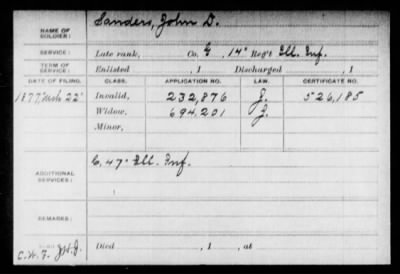 NAME OF SOLDIER: Sanders, John D.
SERVICE: Late rank, Co. G, 14" Reg't Ill. Inf.
TERM OF SERVICE: Enlisted , 1 Discharged , 1
DATE OF FILING. CLASS. APPLICATION NO. LAW. CERTIFICATE NO.
1877 Mch 22" Invalid, 232,876 J. 526,185
Widow, 694,201 J.
Minor,
ADDITIONAL SERVICES: C, 47" Ill. Inf.
REMARKS:
C.W.F. Died , 1 , at